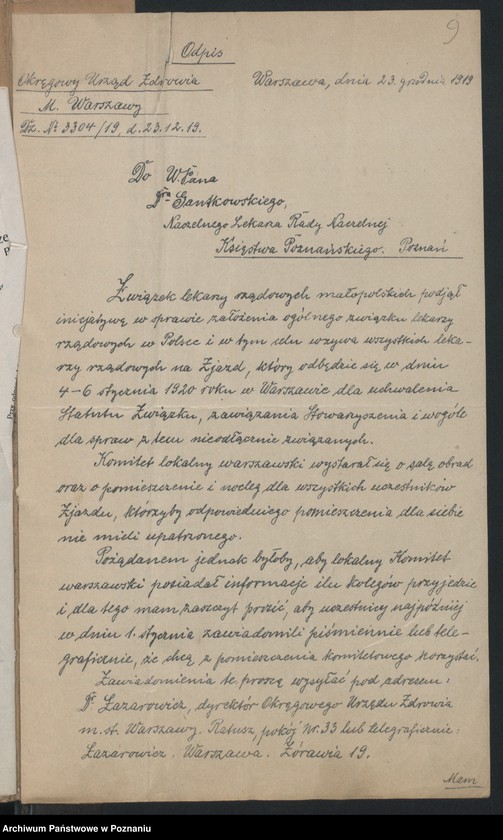 9
Odpis
Okręgowy Urząd Zdrowia
M. Warszawy
Dz. № 3304/19, d. 23.12.19.
Warszawa, dnia 23. grudnia 1919
Do W. Pana
Dra Gantkowskiego,
Naczelnego Lekarza Rady Naczelnej
Księstwa Poznańskiego. Poznań
Związek lekarzy rządowych małopolskich podjął
inicjatywę w sprawie założenia ogólnego związku lekarzy
rządowych w Polsce i w tym celu wzywa wszystkich leka-
rzy rządowych na Zjazd, który odbędzie się w dniu
4-6 stycznia 1920 roku w Warszawie dla uchwalenia
Statutu Związku, zawiązania Stowarzyszenia i wogóle
dla spraw z tem nieodłącznie związanych.
Komitet lokalny warszawski wystarał się o salę obrad
oraz o pomieszczenie i nocleg dla wszystkich uczestników
Zjazdu, którzyby odpowiedniego pomieszczenia dla siebie
nie mieli upatrzonego.
Pożądanem jednak byłoby, aby lokalny Komitet
warszawski posiadał informacje ilu kolegów przyjedzie
i dla tego mam zaszczyt prosić, aby uczestnicy najpóźniej
w dniu 1. stycznia zawiadomili piśmiennie lub tele-
graficznie, że chcą z pomieszczenia komitetowego korzystać.
Zawiadomienia te proszę wysyłać pod adresem:
Dr. Lazarowicz, dyrektór Okręgowego Urzędu Zdrowia
m. st. Warszawy. Ratusz, pokój Nr. 33 lub telegraficznie:
Lazarowicz. Warszawa. Żórawia 19.
Mam
Archiwum Państwowe w Poznaniu